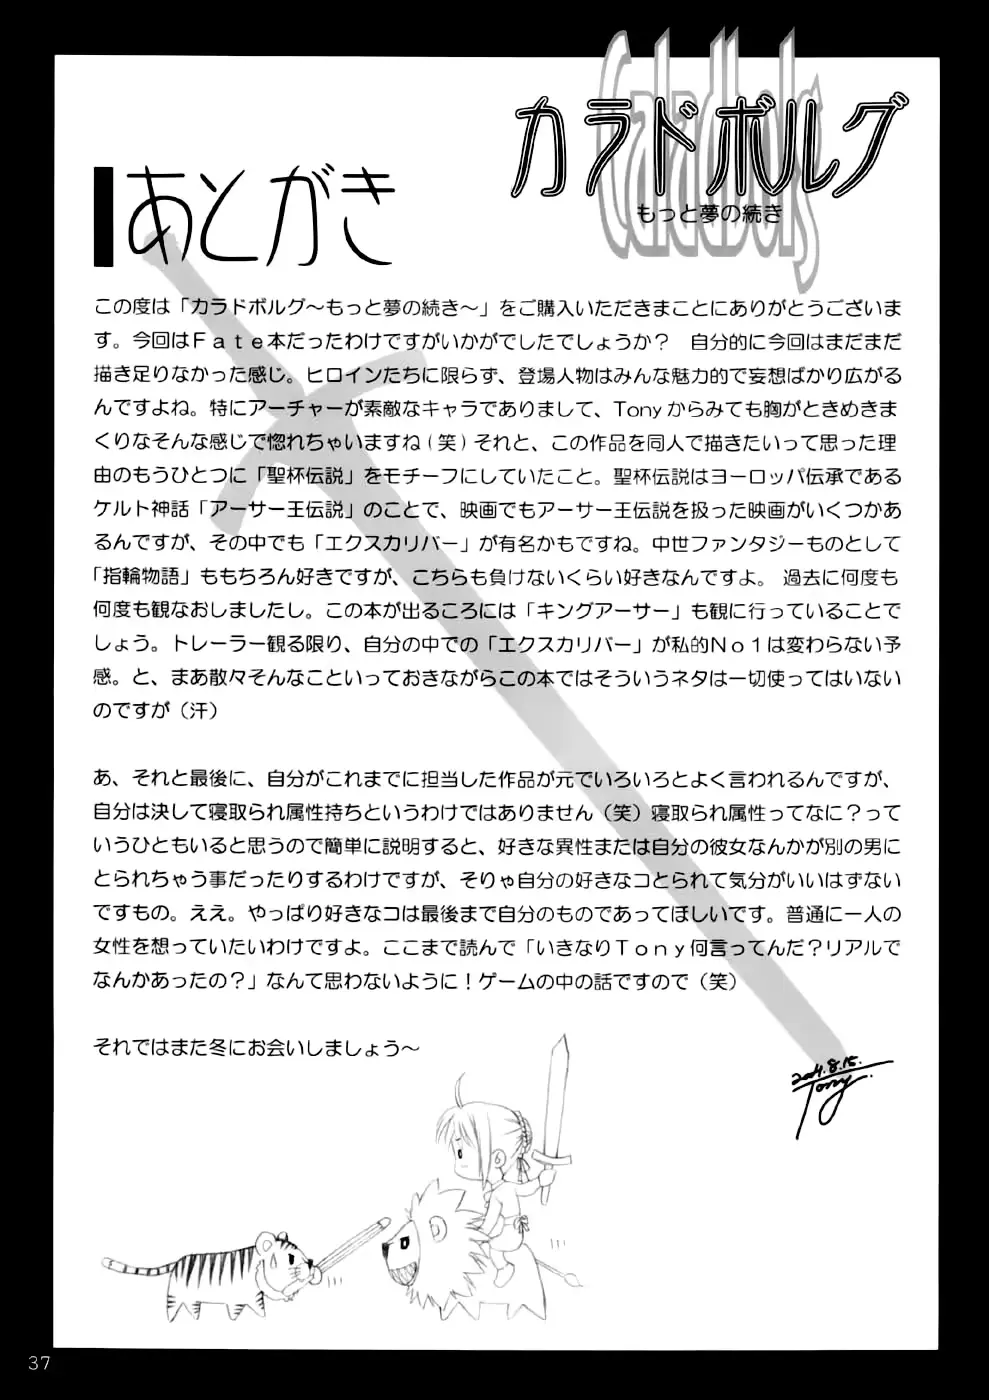 Caladbolg
カラドボルグ
もっと夢の続き
あとがき
この度は「カラドボルグ～もっと夢の続き～」をご購入いただきまことにありがとうございま
す。今回はＦａｔｅ本だったわけですがいかがでしたでしょうか？　自分的に今回はまだまだ
描き足りなかった感じ。ヒロインたちに限らず、登場人物はみんな魅力的で妄想ばかり広がる
んですよね。特にアーチャーが素敵なキャラでありまして、Tonyからみても胸がときめきま
くりなそんな感じで惚れちゃいますね（笑）それと、この作品を同人で描きたいって思った理
由のもうひとつに「聖杯伝説」をモチーフにしていたこと。聖杯伝説はヨーロッパ伝承である
ケルト神話「アーサー王伝説」のことで、映画でもアーサー王伝説を扱った映画がいくつかあ
るんですが、その中でも「エクスカリバー」が有名かもですね。中世ファンタジーものとして
「指輪物語」ももちろん好きですが、こちらも負けないくらい好きなんですよ。 過去に何度も
何度も観なおしましたし。この本が出るころには「キングアーサー」も観に行っていることで
しょう。トレーラー観る限り、自分の中での「エクスカリバー」が私的Ｎｏ１は変わらない予
感。と、まあ散々そんなこといっておきながらこの本ではそういうネタは一切使ってはいない
のですが（汗）
あ、それと最後に、自分がこれまでに担当した作品が元でいろいろとよく言われるんですが、
自分は決して寝取られ属性持ちというわけではありません（笑）寝取られ属性ってなに？って
いうひともいると思うので簡単に説明すると、好きな異性または自分の彼女なんかが別の男に
とられちゃう事だったりするわけですが、そりゃ自分の好きなコとられて気分がいいはずない
ですもの。ええ。やっぱり好きなコは最後まで自分のものであってほしいです。普通に一人の
女性を想っていたいわけですよ。ここまで読んで「いきなりＴｏｎｙ何言ってんだ？リアルで
なんかあったの？」なんて思わないように！ゲームの中の話ですので（笑）
それではまた冬にお会いしましょう～
2004.8.15.
Tony.
37